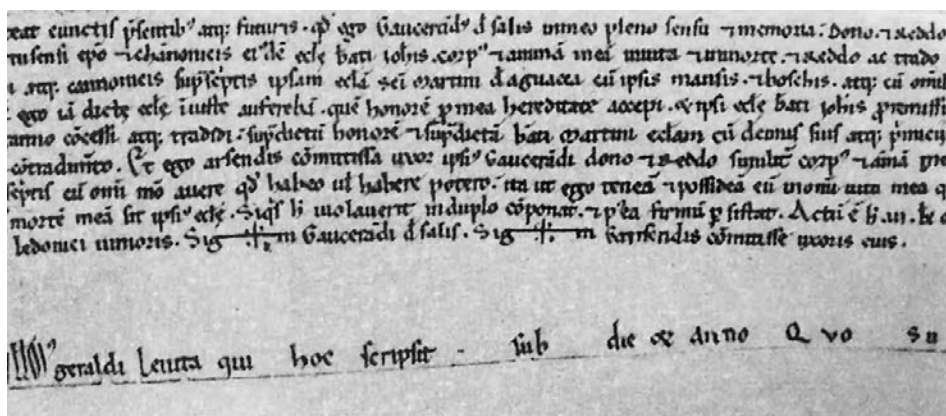 eat cunctis p̄sentib' atq; futuris. qd̄ ego Gaucerād' d̄ salis in meo pleno sensu ⁊ memoria. Dono. ⁊ reddo
epō ⁊ chanonicis ei'dē ecl̄e bati iohīs. corp' ⁊ animā meā in uita ⁊ in morte. ⁊ reddo ac trado
atq; cannonicis sup̄sc̄ptis ipsam ecl̄am sc̄i martini d̄ aguacea cū ipsis mansis. ⁊ boschis. atq; cū omīb
ego iā dictę ecl̄e iniuste auferebā. quē honorē p̄ mea hereditate accepi. & ipsi ecl̄e bati iohīs p̄misi
anno cōcessi atq; tradidi. sup̄dictū honorē ⁊ sup̄dictā bati martini ecl̄am cū decimis suis atq; p̄miciis
cōtradim̄to. Et ego arsendis cōmitissa uxor ipsi' Gaucerādi dono ⁊ reddo similit̄ corp' ⁊ animā meā
sc̄ptis cū omī mō auere qd̄ habeo uł habere potero. ita ut ego teneā ⁊ possideā cū in omī uita mea
morte meā sit ipsi' ecl̄e. Siq̄s h̄ uiolauerit in duplo cōponat. ⁊ p'ea firmū p̄sistat. Actū ē h̄ .iii. kł
ledouici iunioris. Sig m Gaucerādi d̄ salis. Sig m Arsendis cōmitisse uxoris eius.
geraldi leuita qui hoc scripsit . sub die & anno Quo su